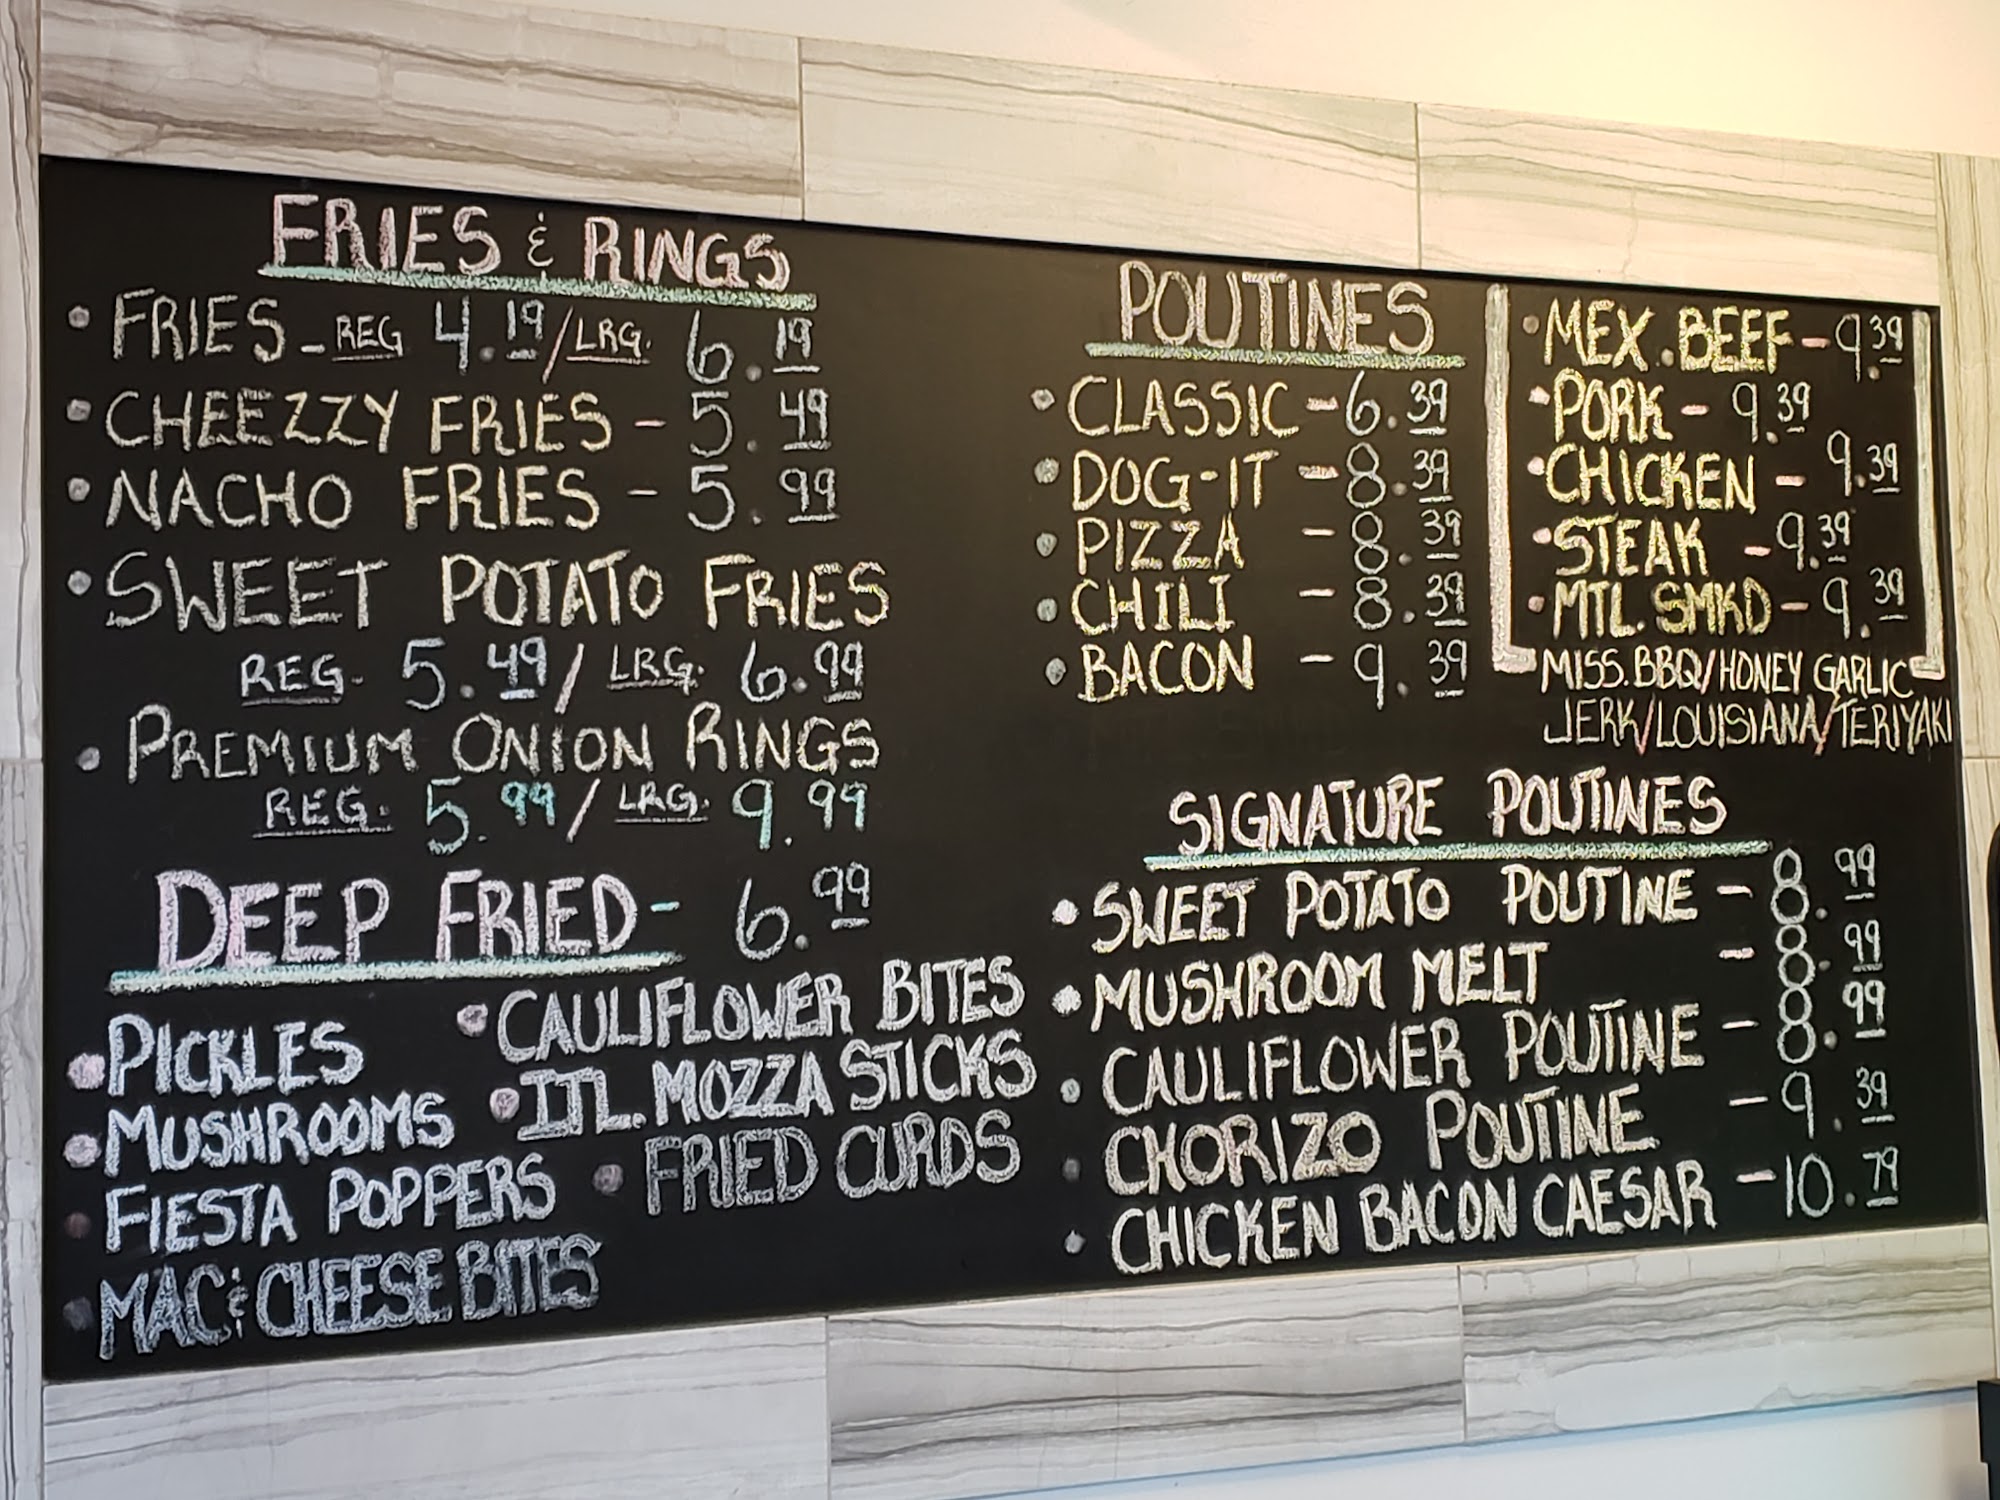 FRIES & RINGS
• FRIES - REG 4.19 / LRG. 6.19
• CHEEZZY FRIES - 5.49
• NACHO FRIES - 5.99
• SWEET POTATO FRIES
REG. 5.49 / LRG. 6.99
• PREMIUM ONION RINGS
REG. 5.99 / LRG. 9.99
DEEP FRIED - 6.99
• PICKLES
• MUSHROOMS
• FIESTA POPPERS
• MAC & CHEESE BITES
• CAULIFLOWER BITES
• ITL. MOZZA STICKS
• FRIED CURDS
POUTINES
• CLASSIC - 6.39
• DOG-IT - 8.39
• PIZZA - 8.39
• CHILI - 8.39
• BACON - 9.39
• MEX. BEEF - 9.39
• PORK - 9.39
• CHICKEN - 9.39
• STEAK - 9.39
• MTL. SMKD - 9.39
MISS. BBQ/HONEY GARLIC
JERK/LOUISIANA/TERIYAKI
SIGNATURE POUTINES
• SWEET POTATO POUTINE - 8.99
• MUSHROOM MELT - 8.99
• CAULIFLOWER POUTINE - 8.99
• CHORIZO POUTINE - 9.39
• CHICKEN BACON CAESAR - 10.79